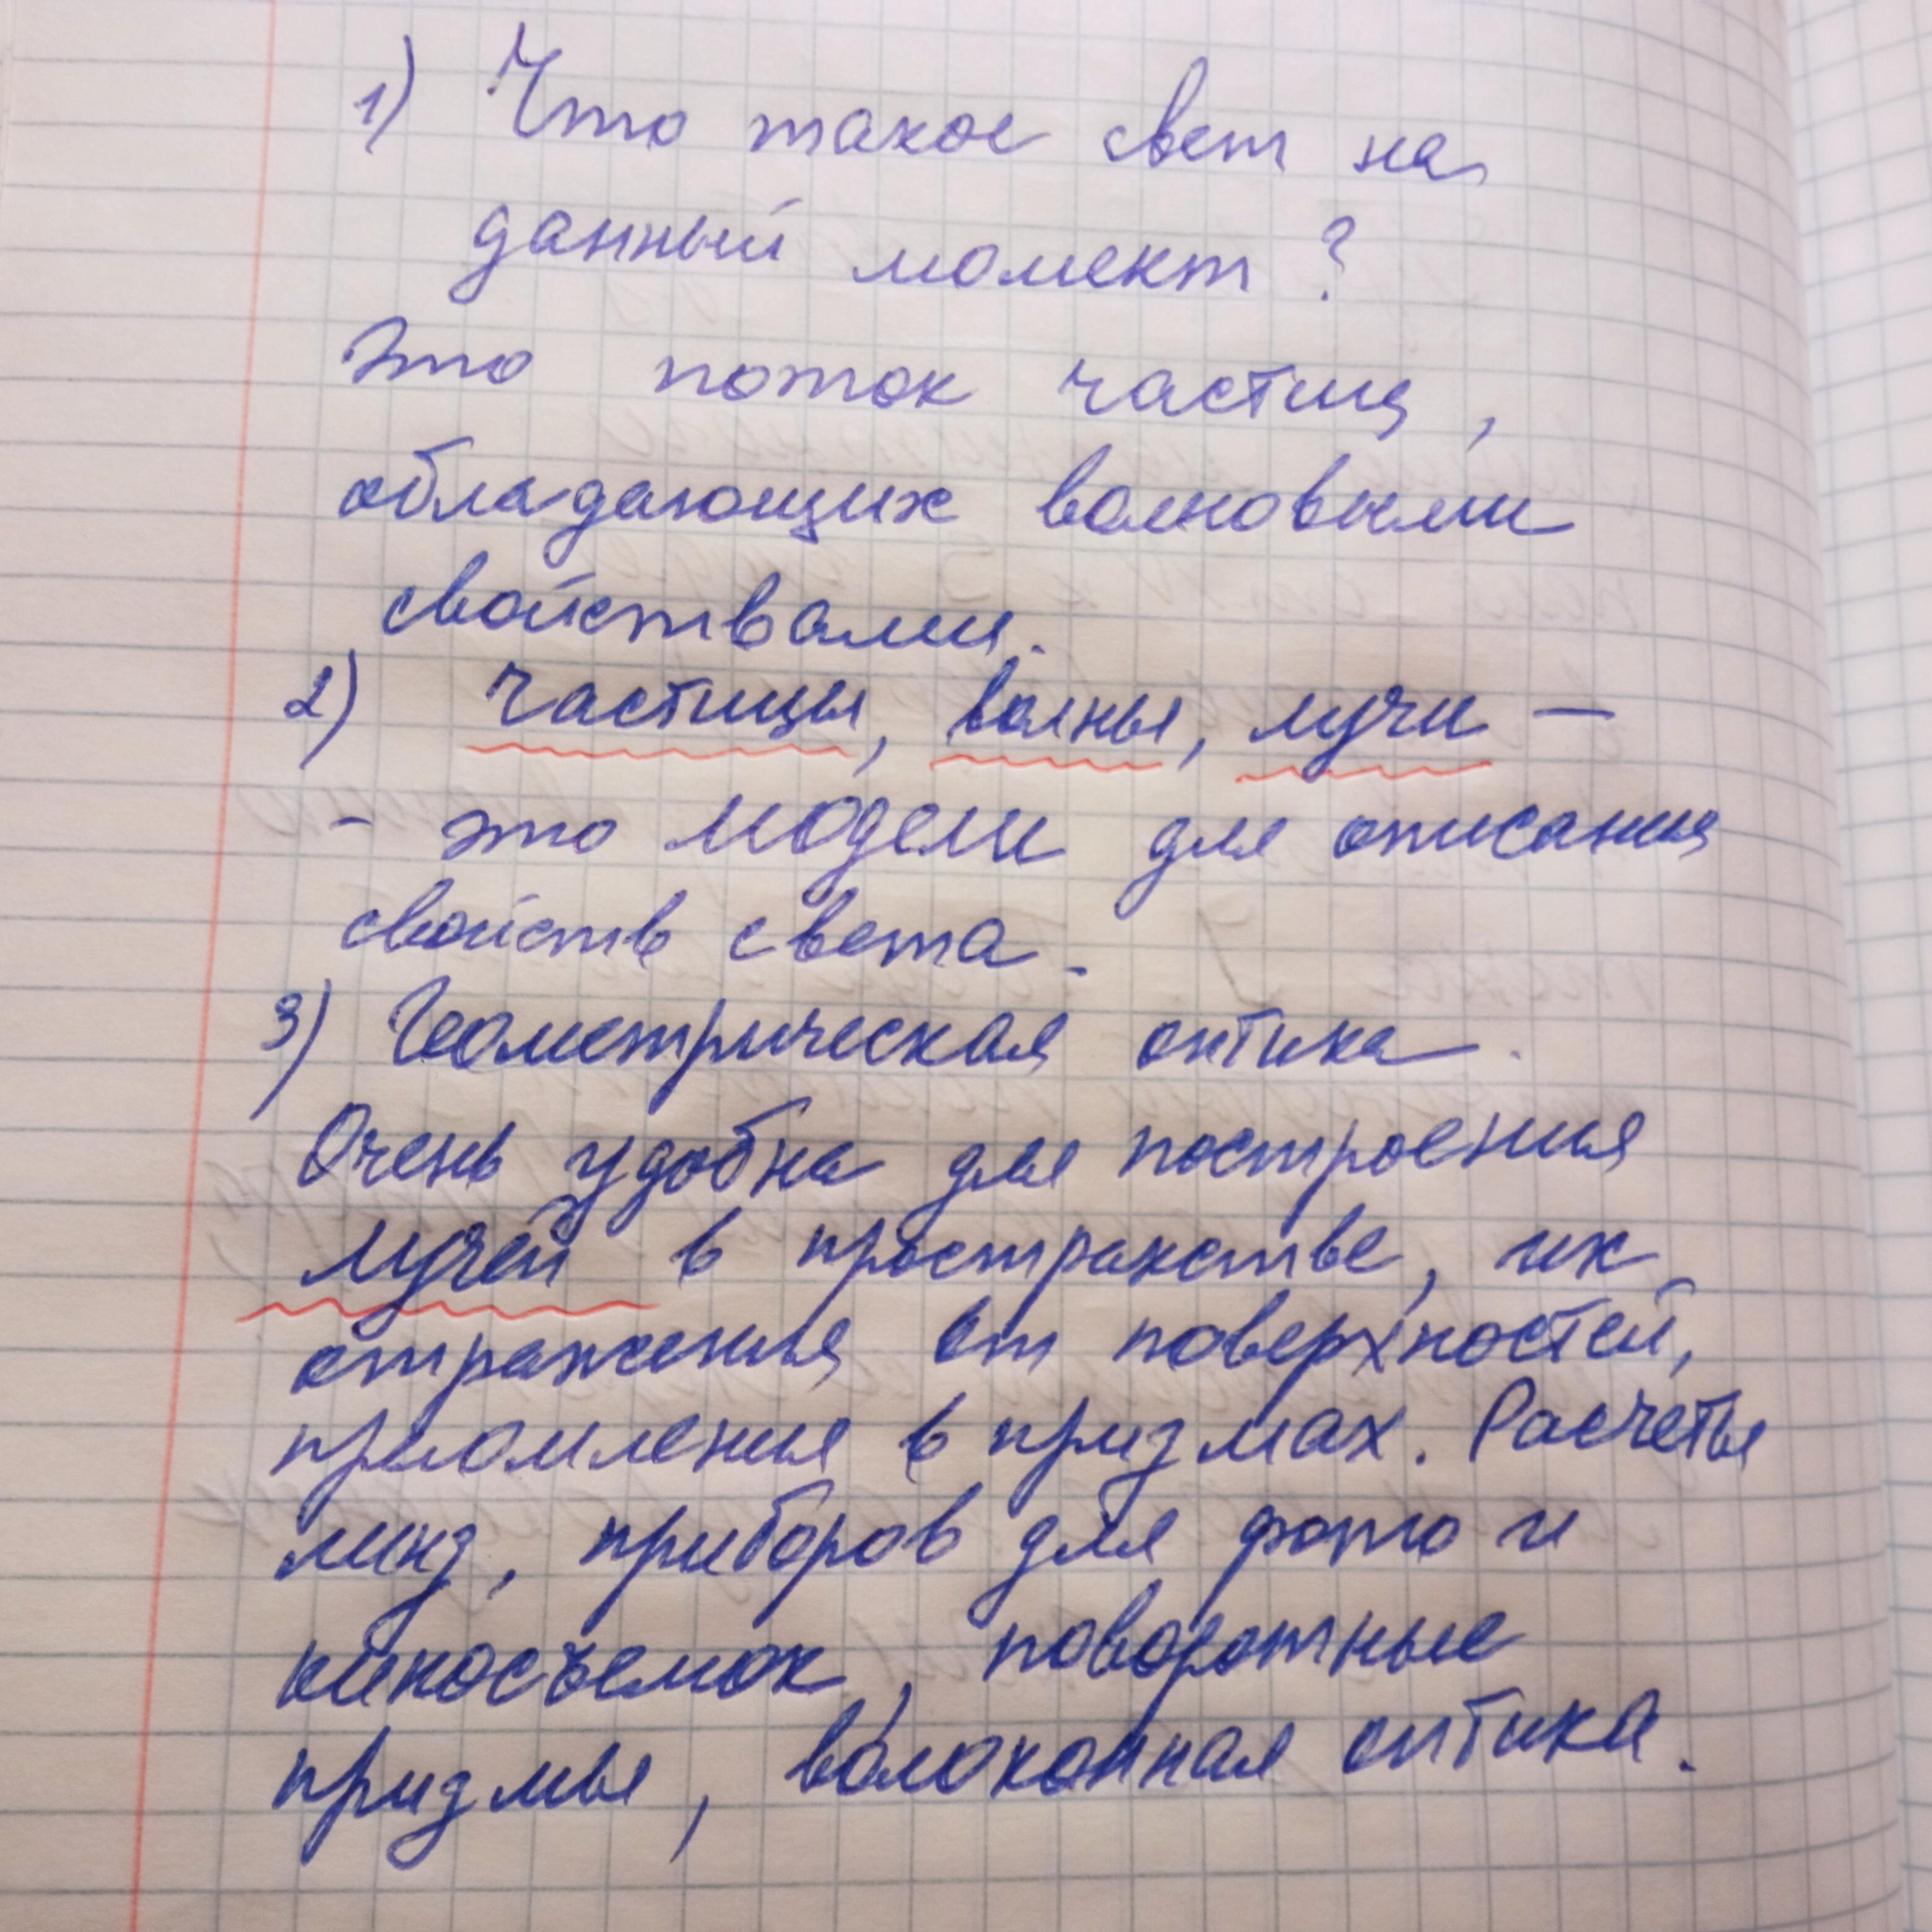 1) Что такое свет на
данный момент?
Это поток частиц,
обладающих волновыми
свойствами.
2) Частицы, волны, лучи –
- это модели для описания
свойств света.
3) Геометрическая оптика.
Очень удобна для построения
лучей в пространстве, их
отражения от поверхностей,
преломления в призмах. Расчеты
линз, приборов для фото и
киносъемок, поворотные
призмы, волоконная оптика.